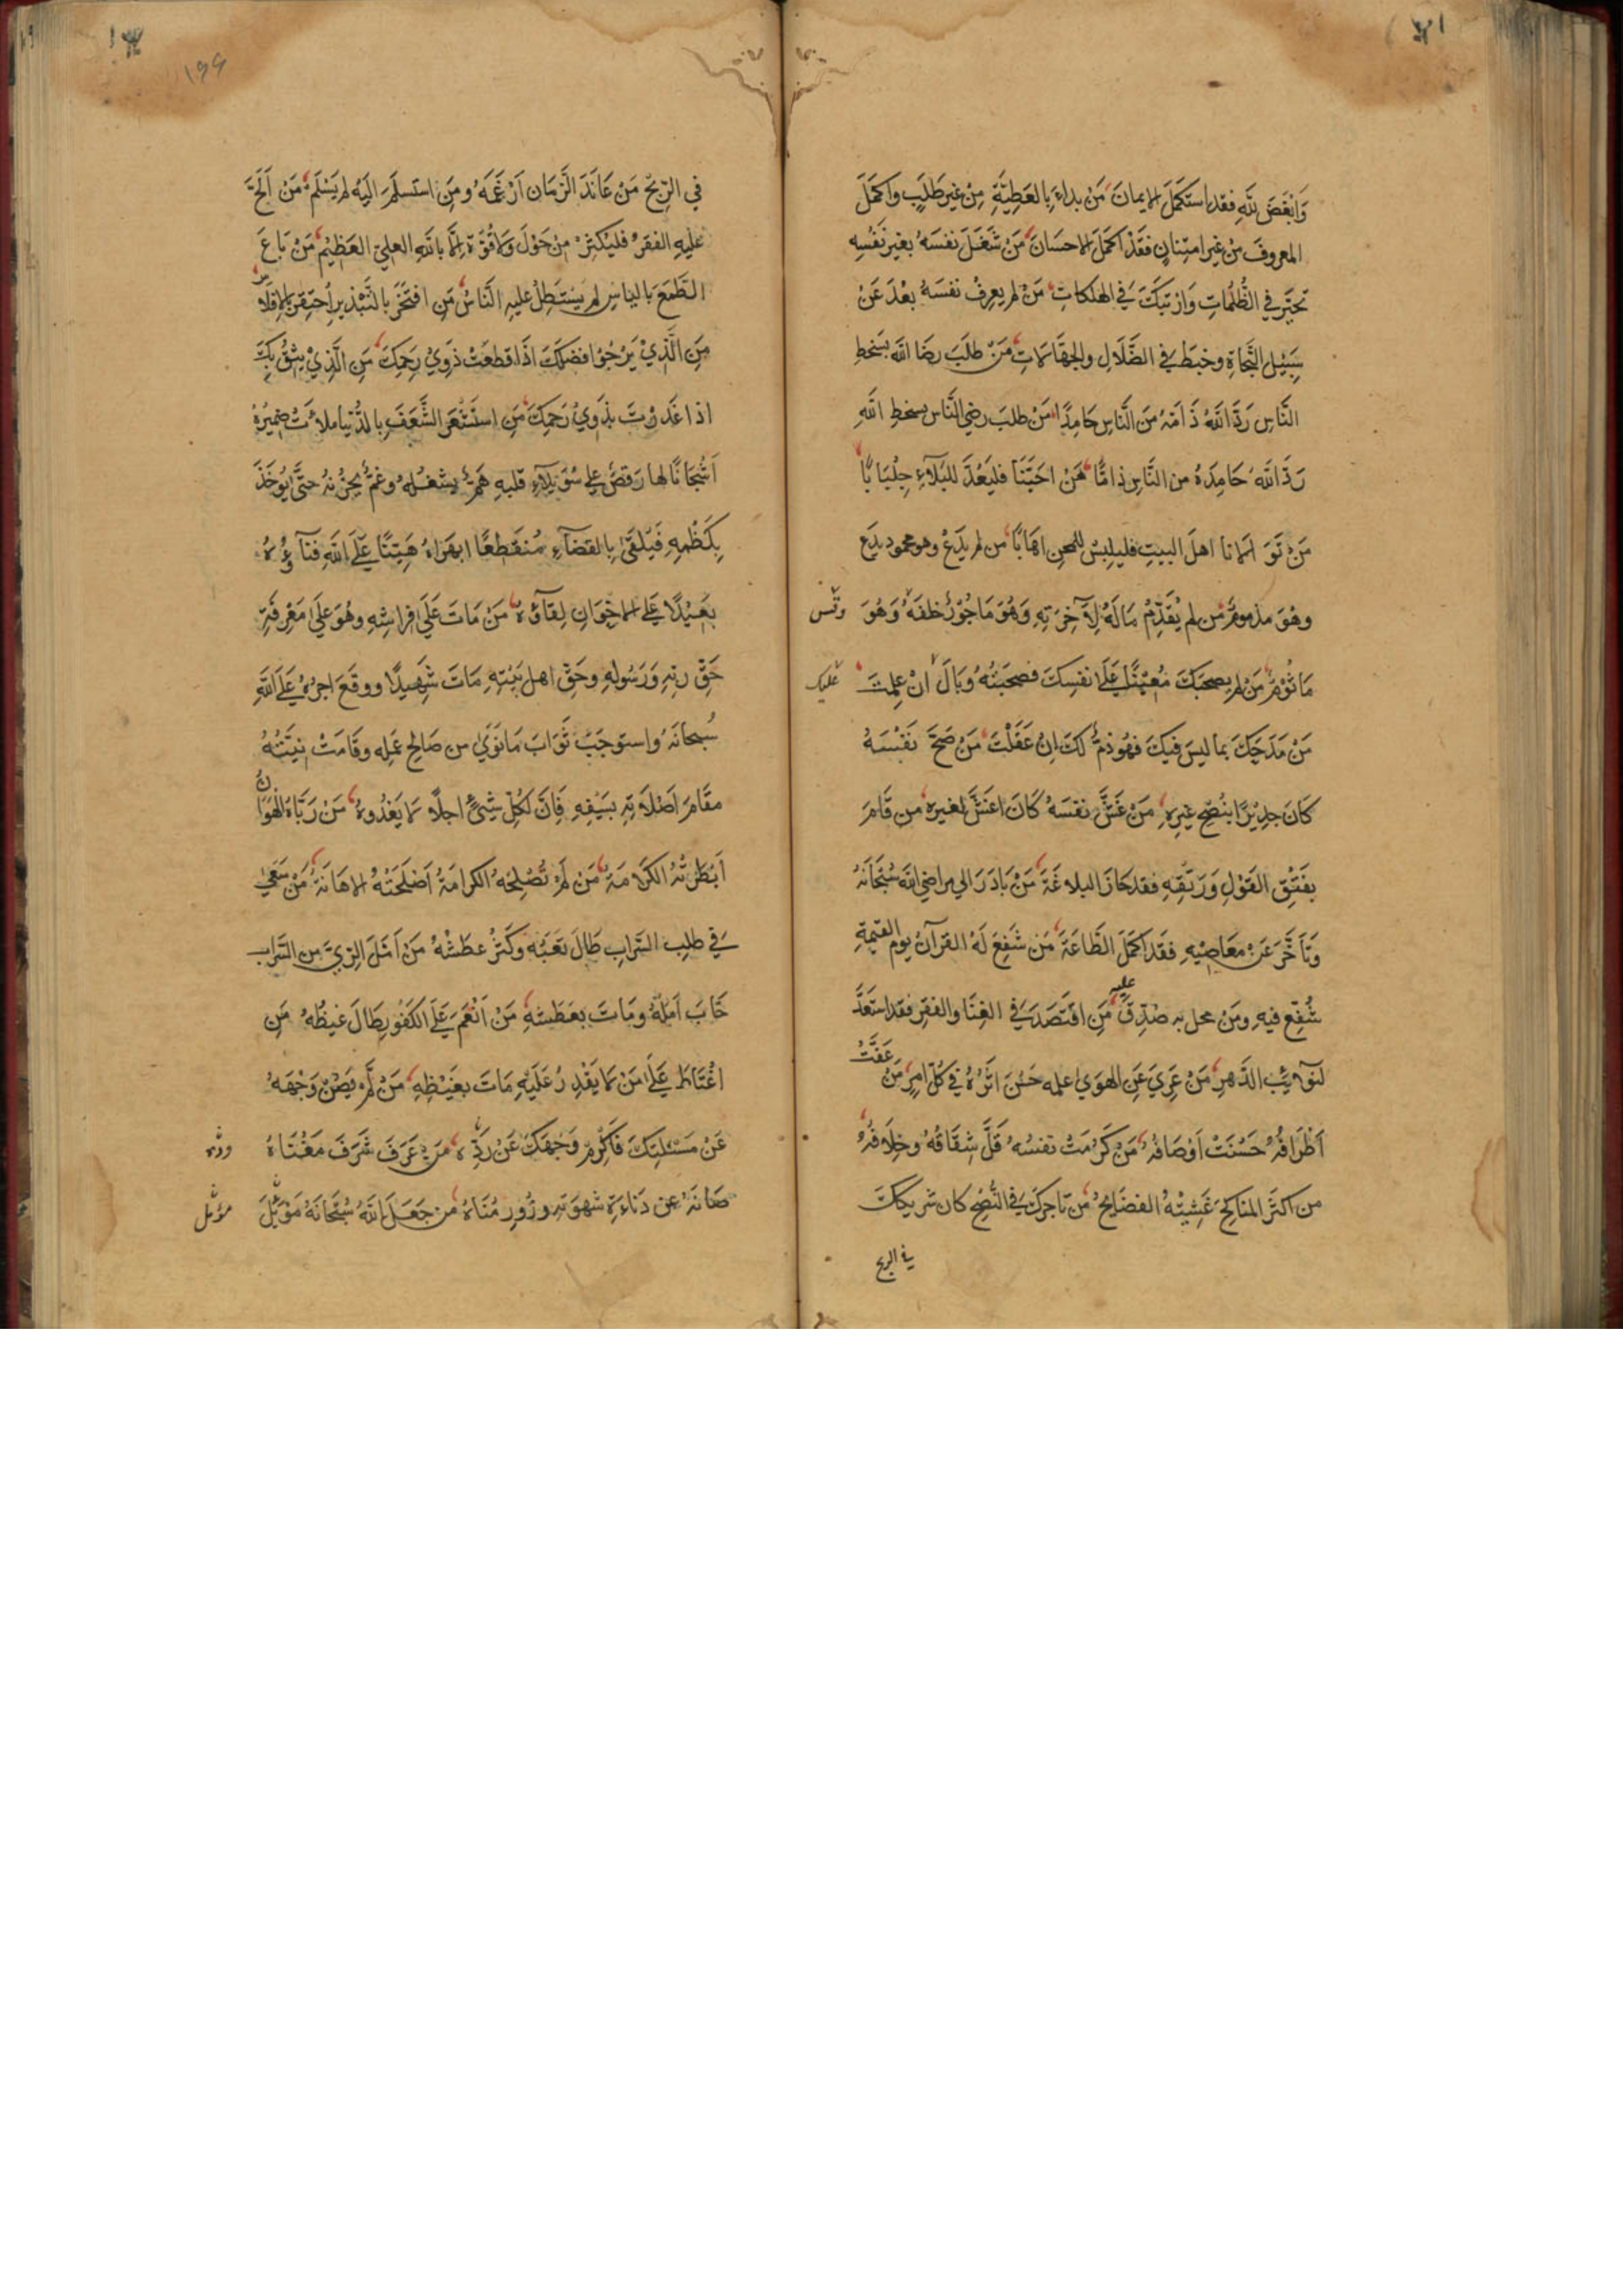 وَابْغَضَ لِلّهِ فقد استَكمَلَ الايمانَ مَنْ بداءَ بِالعَطِيَّةِ مِنْ غير طَلَبٍ واكمَلَ
المعروفَ من غير امتِنانٍ فقَدْ اكمَلَ الاحسَانَ مَنْ شَغَلَ نفسَهُ بغيرِ نَفسِهِ
تحيَّر في الظُّلُماتِ وَارتبَكَ في الهلكاتِ مَنْ لم يعرِفْ نفسَهُ بعْدَ عَنْ
سَبِيْلِ النَّجاةِ وخبَطَ في الضَّلَالِ والجهَالاتِ مَنْ طلَبَ رضَا اللّه بسَخطِ
النَّاسِ رَدَّ اللّهُ ذَامَهُ مَنَ النَّاسِ حَامِدًا مَنْ طلبَ رضي النَّاس بسخطِ اللّهِ
رَدَّ اللّهُ حَامِدَهُ من النَّاسِ ذامًّا مَنْ احَبَّنَا فليَعُدَّ للبَلَآءِ جِلْبَابًا
مَنْ تَوَالانا اهلَ البيتِ فليلبِسْ للمحنِ اهَابًا من لم يدَعْ وهو محمود يدَع
وهُوَ مذمومٌ من لم يُقَدِّمْ مَالَهُ لِآخِرَتِهِ وَهُوَ مَاجُوْرٌ خلفَهُ وَهُوَ
مَاثُوْمٌ مَنْ لم يصحبَكَ مُعِيْنًا عَلَى نفسِكَ فصحبَتُهُ وَبَالٌ انْ علِمتَ
عليك
مَنْ مَدَحَكَ بما ليسَ فيكَ فهُو ذمٌّ لكَ اِنْ عَقَلْتَ مَنْ صَحَّ نَفْسَهُ
كَانَ جدِيْرًا بنُصْحِ غيرِهِ مَنْ غَشَّ نفسَهُ كَانَ اغشَّ لغيرِهِ من قَامَ
بفَتْقِ القَوْلِ وَرَتْقِهِ فقد حَازَ البلاغَةَ مَنْ بَادَرَ الي مراضي اللّه سُبْحَانَهُ
وَتَأَخَّرَ عَنْ معَاصِيْهِ فقَد اكمَلَ الطَّاعَةَ مَن شفعَ لَهُ القرآنُ يوم القيمةِ
شُفِّعَ فيهِ ومَن محل به صُدِّقَ عليه مَنِ اقتَصَدَ في الغِنَا والفقرِ فقد استَعَدَّ
لنوآئِبِ الدَّهرِ مَنْ عَرِيَ عَنِ الهوَى عمله حَسُنَ اثَرُهُ في كُلّ امرٍ مَنْ عَفَّتْ
اَطْرَافُهُ حَسُنَتْ اَوْصَافُهُ مَنْ كَرُمَتْ نفسُهُ قَلَّ شِقَاقُهُ وخِلَافُهُ
من اكثَرَ المناكِحَ غَشِيَتْهُ الفضَايحُ مَن تاجركَ في النُّصْحِ كان شريككَ
في الربح
في الرِّبحِ مَنْ عَانَدَ الزَّمَان اَرْغَمَهُ ومَنِ استَسلَمَ اليَهُ لم يَسْلَم مَنْ اَلَحَّ
عَليهِ الفقرُ فليُكثِرْ مِنْ حَوْلَ وَلَا قُوَّةَ اِلَّا باللّهِ العلِيّ العَظيْم مَنْ بَاعَ
الطَّمَعَ بالياسِ لم يَستَطِلْ عليهِ النَّاسُ مَنِ افتَخَرَ بالتَّبذيرِ اُحتِقِرَ بالإفلاسِ
مَنِ الَّذِيْ يَرْجُوْا فضلكَ اذَا قطعْتَ ذوِيْ رَحِمِكَ مَنِ الَّذِيْ يثِقُ بكَ
اذا غَدرْتَ بذَوِيْ رَحمِكَ مَنِ استَشْعَرَ الشَّغَفَ بالدُّنيَا ملاءَتْ ضميْرَهُ
اَشْجَانًا لها رَقصٌ علي سُوَيدَآءِ قلبِهِ هَمٌّ يشغلُهُ وغمٌّ يحزُنهُ حتَّى يُوخَذَ
بكَظْمِهِ فَيُلقَى بالقضَآءِ مُنقَطِعًا ابهَرَاهُ هَيِّنًا عَلَى اللّهِ فنَآؤُهُ
بعَيْدًا عَلى الاخْوَانِ لِقآؤهُ مَنْ مَاتَ عَلَى فِراشِهِ وهُوَ عَلَى مَعْرِفَةِ
حَقّ ربّهِ وَرَسُولِهِ وحَقّ اهلِ بَيْتِهِ مَاتَ شَهِيدًا ووقَعَ اجرُهُ عَلَى اللّهِ
سُبحانَهُ واستوجَبَ ثَوَابَ مَا نَوَى من صَالح عَمَلِه وقَامَتْ نيَّتُهُ
مقَامَ اَصْلَاتِهِ بسَيْفِهِ فَاِنَّ لكُلّ شَيْءٍ اجلًا لَا يَعْدُوهُ مَنْ رَبَّاهُ الهَوَانُ
اَبْطَرَتْهُ الكرَامَةُ مَنْ لَمْ تُصْلِحْهُ الكرامَةُ اَصْلَحَتْهُ الاهَانَةُ مَنْ سَعَى
في طلِب السَّرابِ طَالَ تعَبُه وكثُرَ عطَشُهُ مَنْ اَمَّلَ الرِّيَّ من السَّرابِ
خَابَ اَمَلُهُ ومَاتَ بعَطَشهِ مَنْ اَنْعَمَ عَلَى الكَفُورِ طَالَ غيظُهُ مَنِ
اغْتَاظَ عَلَى مَنْ لَا يقْدِرُ عَلَيْهِ مَاتَ بغَيْظِهِ مَنْ لَمْ يَصُنْ وَجْهَهُ
عَنْ مَسْئَلتِكَ فَاَكْرِمْ وَجْهَكَ عَنْ رَدِّهِ مَنْ عَرَفَ شَرَفَ مَعْنَاهُ
صَانَهُ عن دَنَاءَةِ شهوَتهِ وزُورِ مُنَاهُ من جعَلَ اللّهَ سُبْحَانَهُ مَوْئِلَ